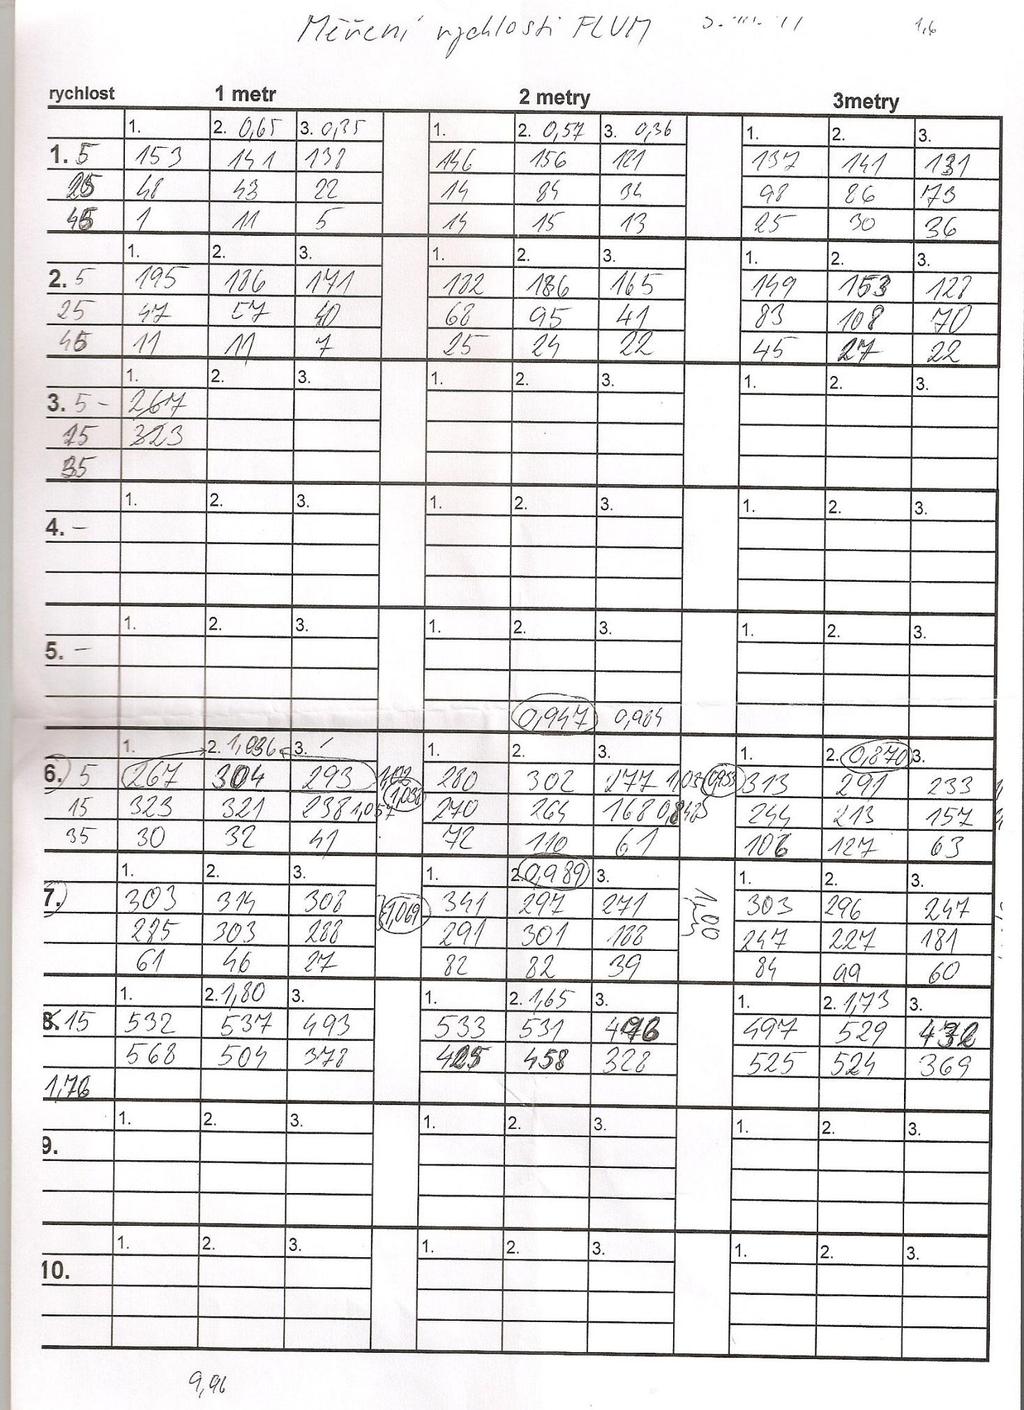 Měření rychlosti FLUM
1,6
rychlost 1 metr 2 metry 3metry
1. 2. 0,65 3. 0,35 1. 2. 0,57 3. 0,36 1. 2. 3.
1. 5 153 141 138 146 156 121 137 141 131
25 48 43 22 14 84 34 98 86 73
45 1 11 5 14 15 13 25 30 36
1. 2. 3. 1. 2. 3. 1. 2. 3.
2. 5 195 186 171 182 186 165 149 153 128
25 47 57 40 68 95 41 83 108 70
45 11 11 7 25 24 22 45 27 22
1. 2. 3. 1. 2. 3. 1. 2. 3.
3. 5 - 267
25 323
35
1. 2. 3. 1. 2. 3. 1. 2. 3.
4. -
1. 2. 3. 1. 2. 3. 1. 2. 3.
5. -
0,947 0,904
1. 2. 1,036 3. 1. 2. 3. 1. 2. 0,870 3.
6. 5 267 304 293 280 302 277 1,03 0,953 313 291 233
15 323 321 238 1,057 1,038 270 264 168 0,843 244 213 157
35 30 32 41 72 110 61 106 127 63
1. 2. 3. 1. 2. 0,989 3. 1. 2. 3.
7. 303 314 308 1,069 341 297 271 1,00 303 296 247
285 303 288 291 301 188 247 227 181
61 46 27 82 82 39 84 99 60
1. 2. 1,80 3. 1. 2. 1,65 3. 1. 2. 1,73 3.
8. 15 532 537 493 533 531 476 497 529 432
568 504 378 425 458 328 525 524 369
1,76
1. 2. 3. 1. 2. 3. 1. 2. 3.
9.
1. 2. 3. 1. 2. 3. 1. 2. 3.
10.
9,96